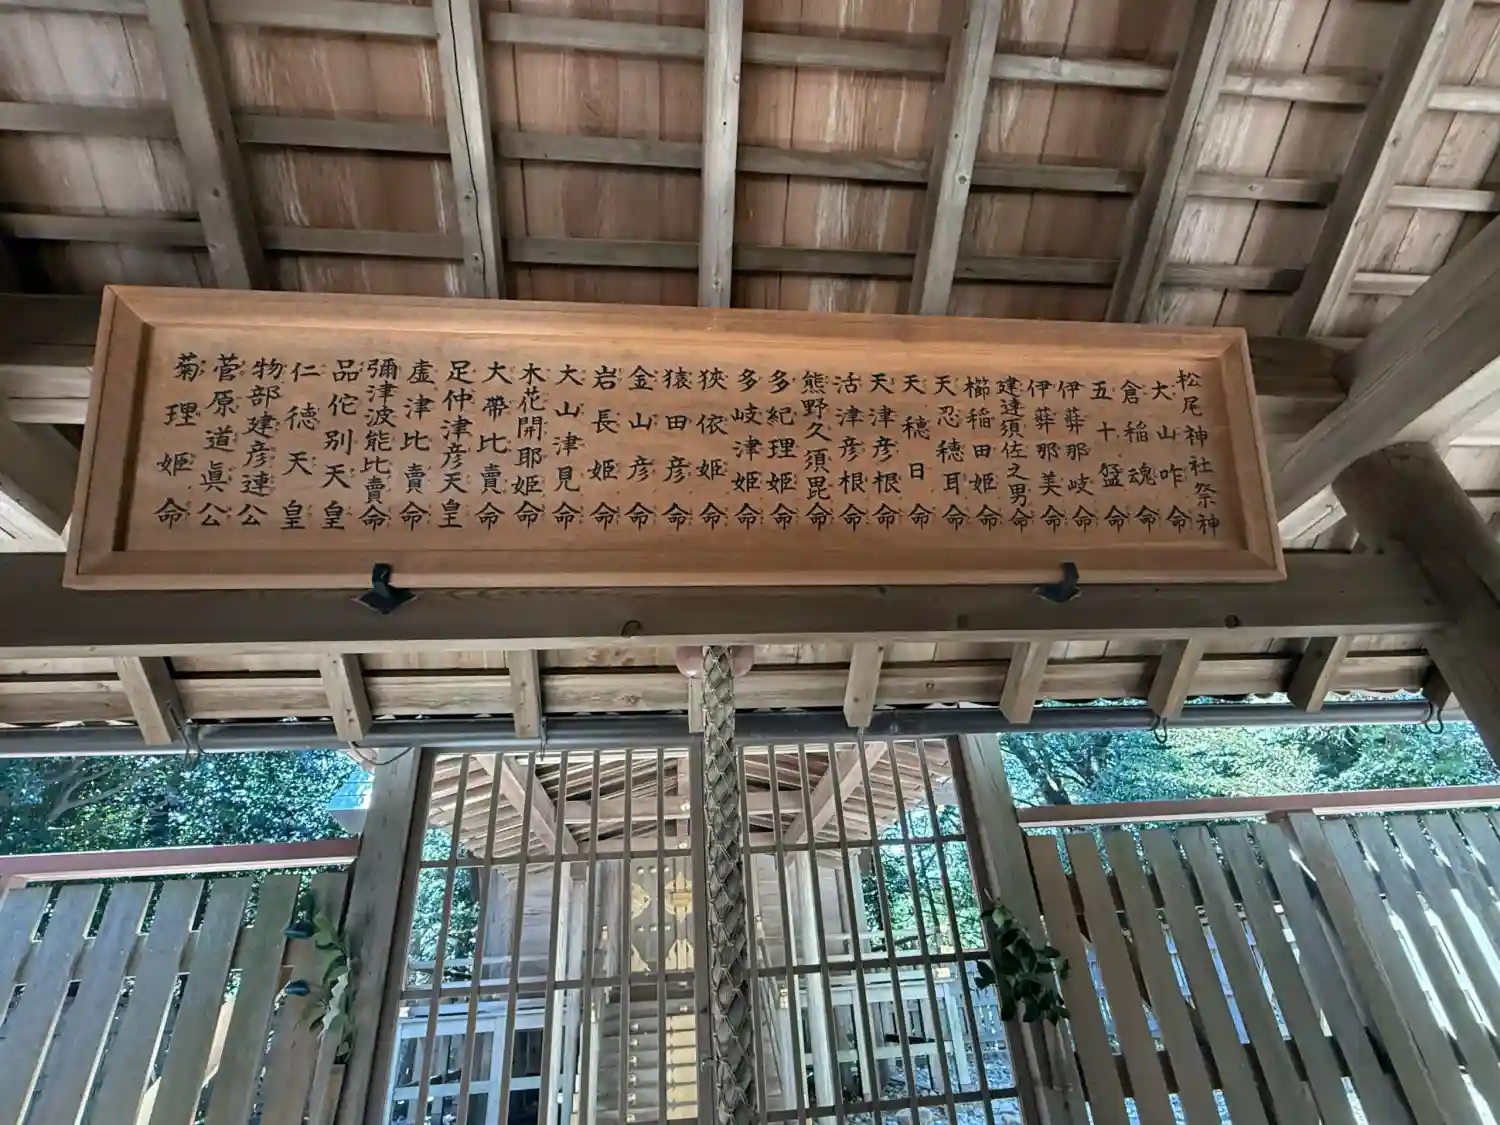 松尾神社祭神
大山咋命
倉稲魂命
五十盤命
伊弉那岐命
伊弉那美命
建速須佐之男命
櫛稲田姫命
天忍穂耳命
天穂日命
天津彦根命
活津彦根命
熊野久須毘命
多紀理姫命
多岐津姫命
狹依姫命
猿田彦命
金山彦命
岩長姫命
大山津見命
木花開耶姫命
大帶比賣命
足仲津彦天皇
虚津比賣命
彌津波能比賣命
品佗別天皇
仁徳天皇
物部建彦連公
菅原道眞公
菊理姫命